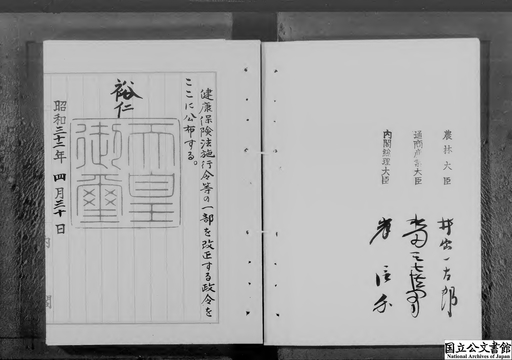 農林大臣 井出一太郎
通商産業大臣 水田三喜男
内閣総理大臣 岸信介
健康保険法施行令等の一部を改正する政令を
ここに公布する。
裕仁
天皇
御璽
昭和三十二年 四月三十日
国立公文書館
National Archives of Japan